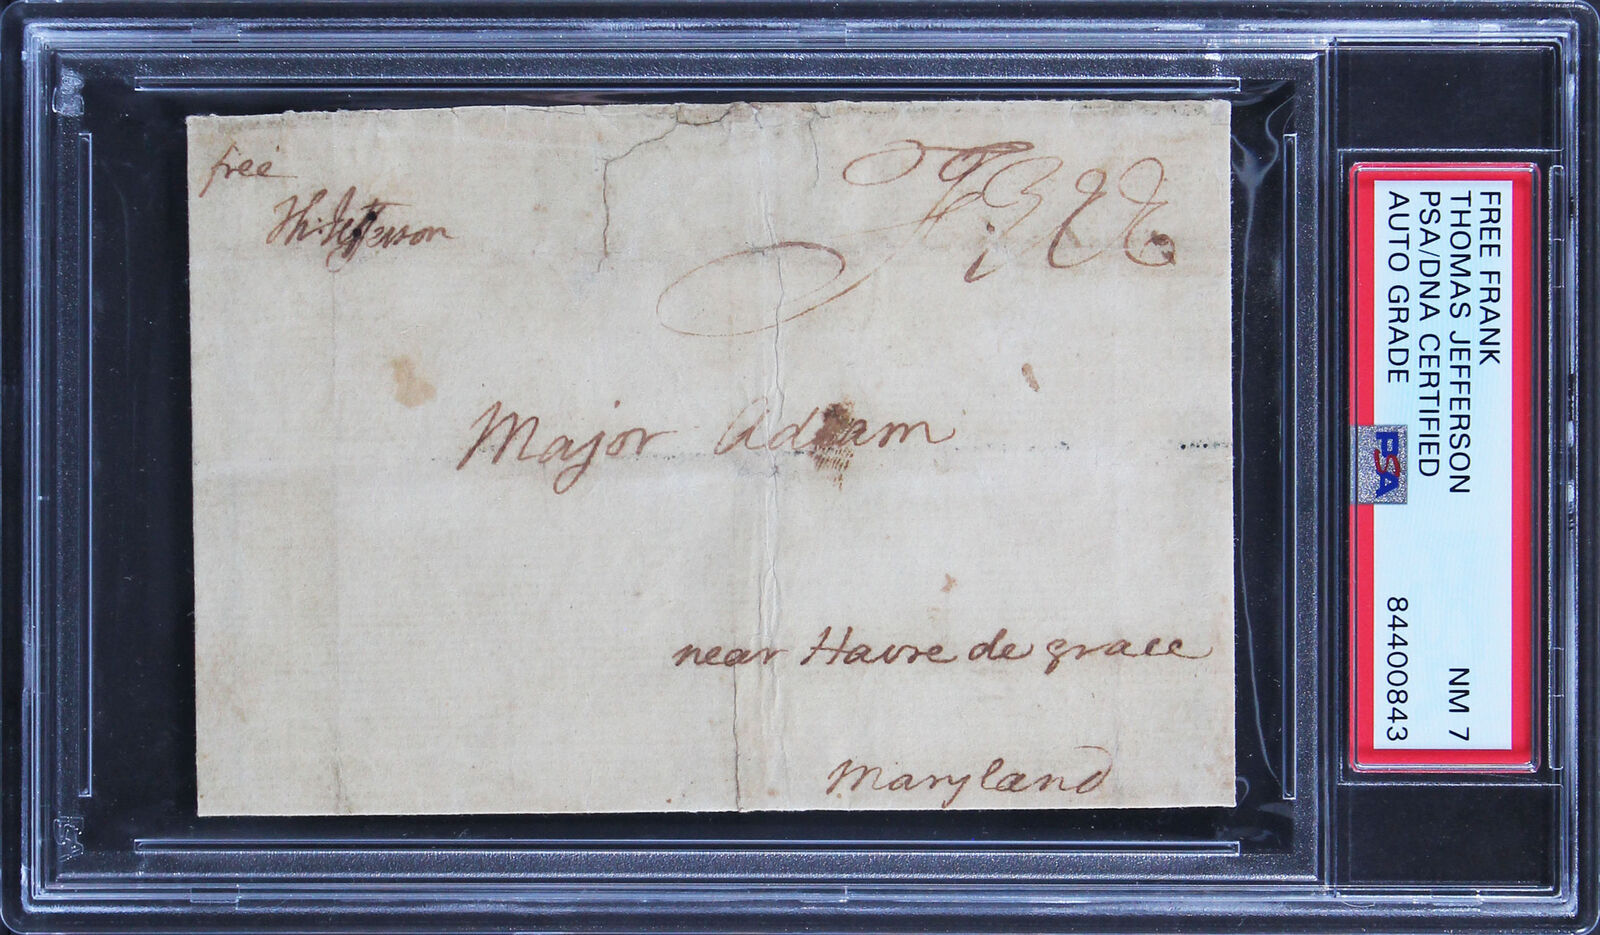 free
Th: Jefferson
Free
Major Adlum
near Havre de grace
Maryland
FREE FRANK
THOMAS JEFFERSON
PSA/DNA CERTIFIED NM 7
AUTO GRADE 84400843
PSA